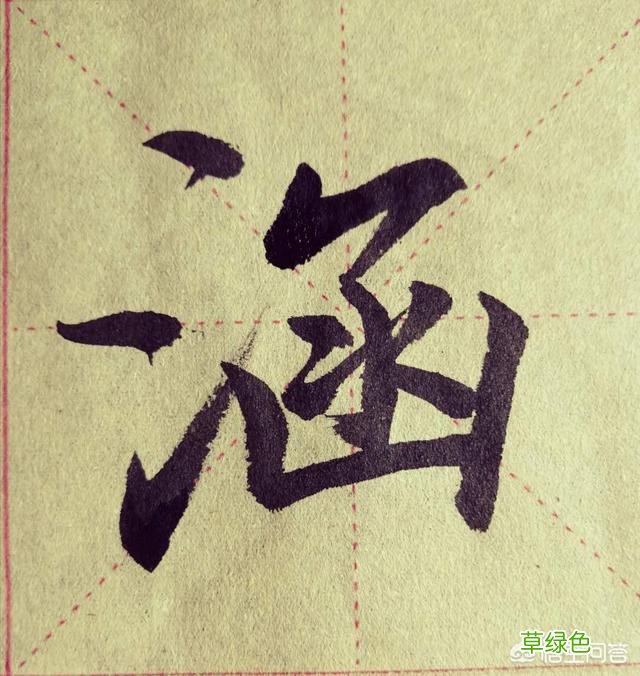 涵
草绿色
悟空问答